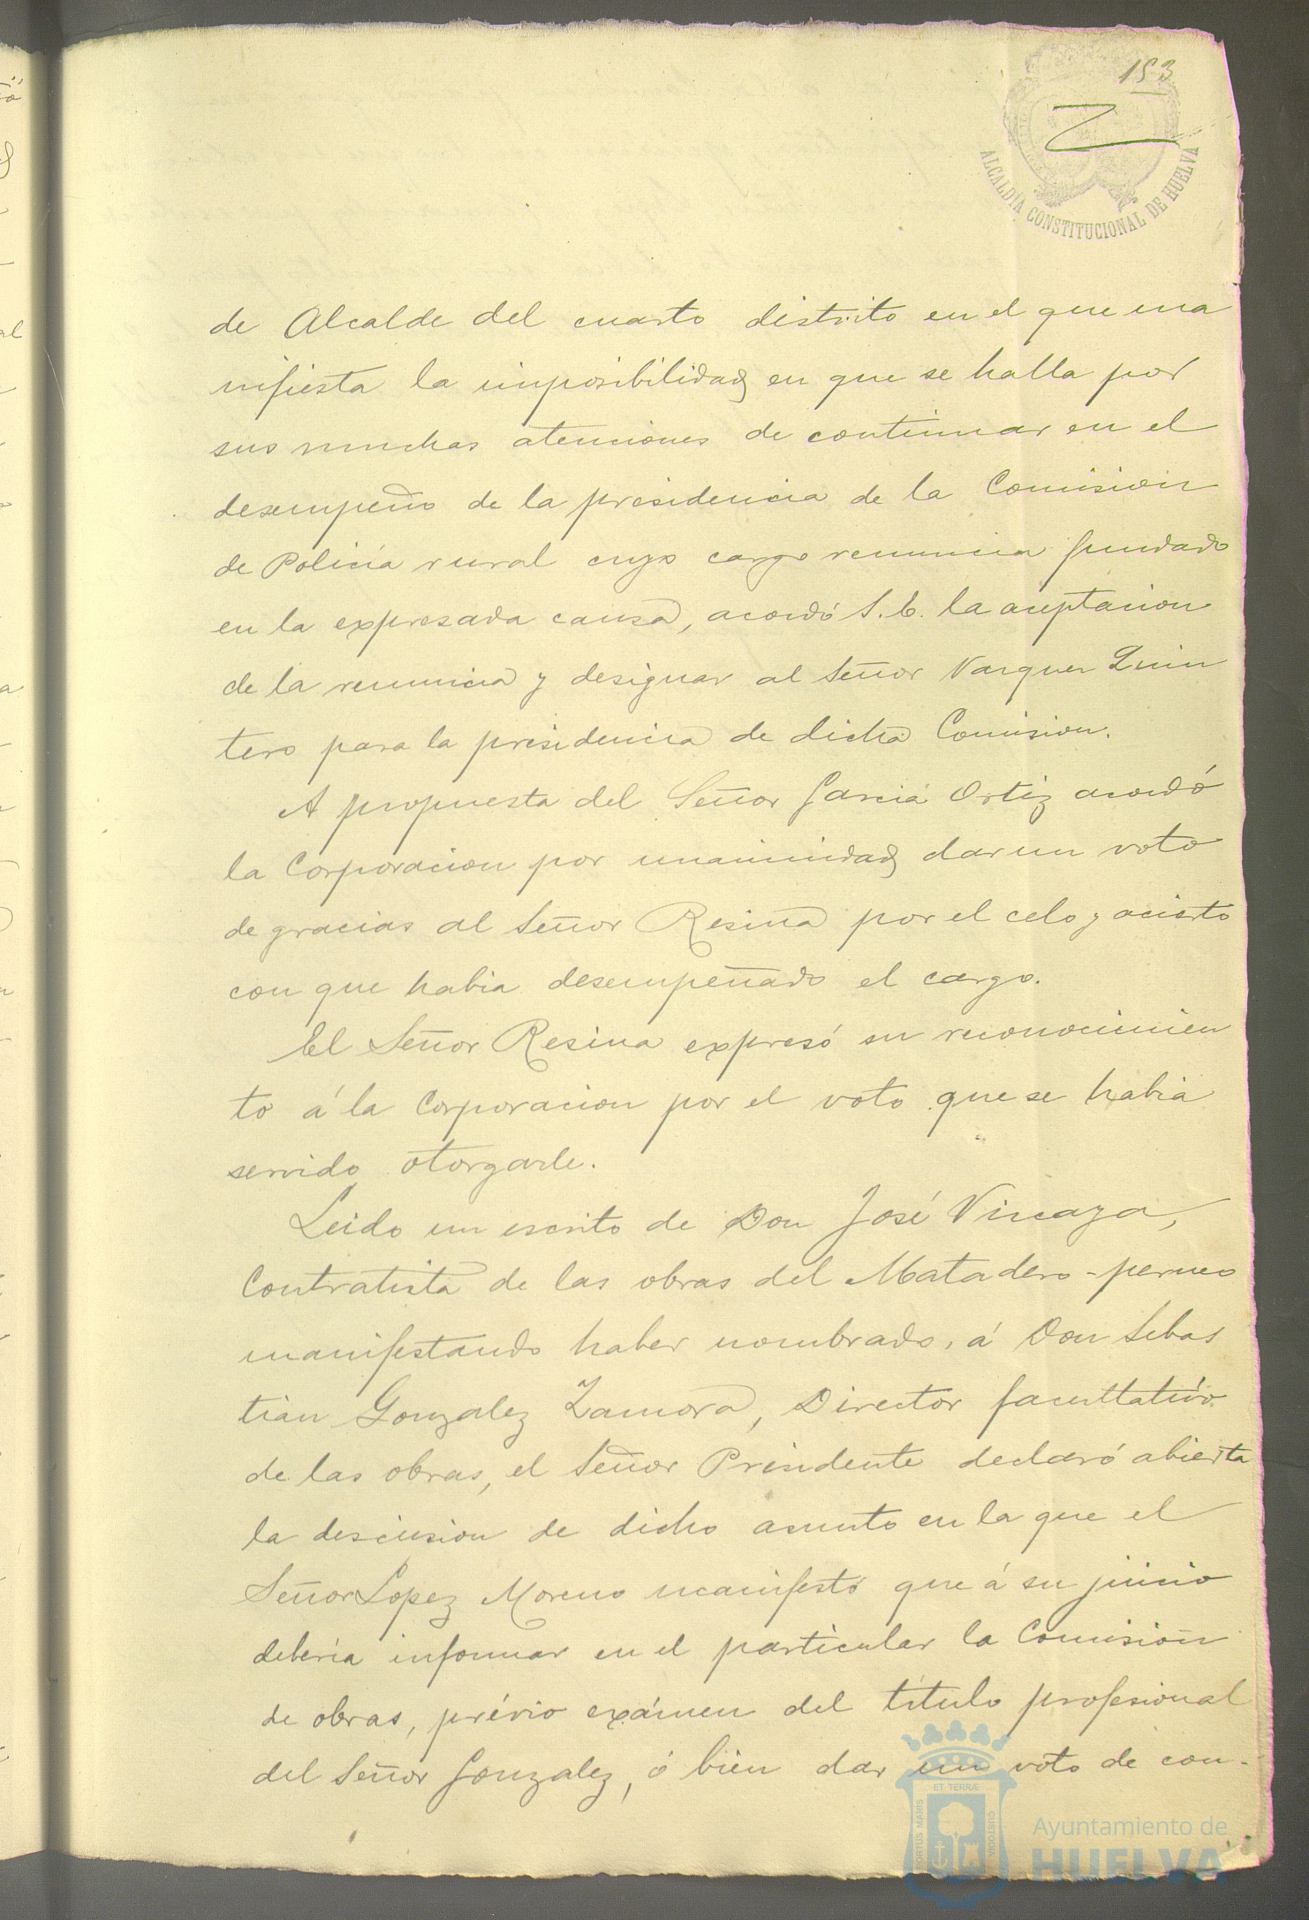 153
ALCALDÍA CONSTITUCIONAL DE HUELVA
de Alcalde del cuarto distrito en el que ma
nifiesta la imposibilidad en que se halla por
sus muchas atenciones de continuar en el
desempeño de la presidencia de la Comision
de Policia rural cuyo cargo renuncia fundado
en la expresada causa, acordó S.E. la aceptacion
de la renuncia y designar al Señor Vazquez Quin
tero para la presidencia de dicha Comision.
A propuesta del Señor Garcia Ortiz acordó
la Corporacion por unanimidad dar un voto
de gracias al Señor Resina por el celo y acierto
con que habia desempeñado el cargo.
El Señor Resina expresó su reconocimien
to á la Corporacion por el voto que se habia
servido otorgarle.
Leido un escrito de Don José Vizcaya,
Contratista de las obras del Matadero-perneo
manifestando haber nombrado, á Don Sebas
tian Gonzalez Zamora, Director facultativo
de las obras, el Señor Presidente declaró abierta
la descusion de dicho asunto en la que el
Señor Lopez Moreno manifestó que á su juicio
deberia informar en el particular la Comision
de obras, prévio exámen del titulo profesional
del Señor Gonzalez, ó bien dar un voto de con-
PORTUS MARIS ET TERRÆ CUSTODIA
Ayuntamiento de
HUELVA